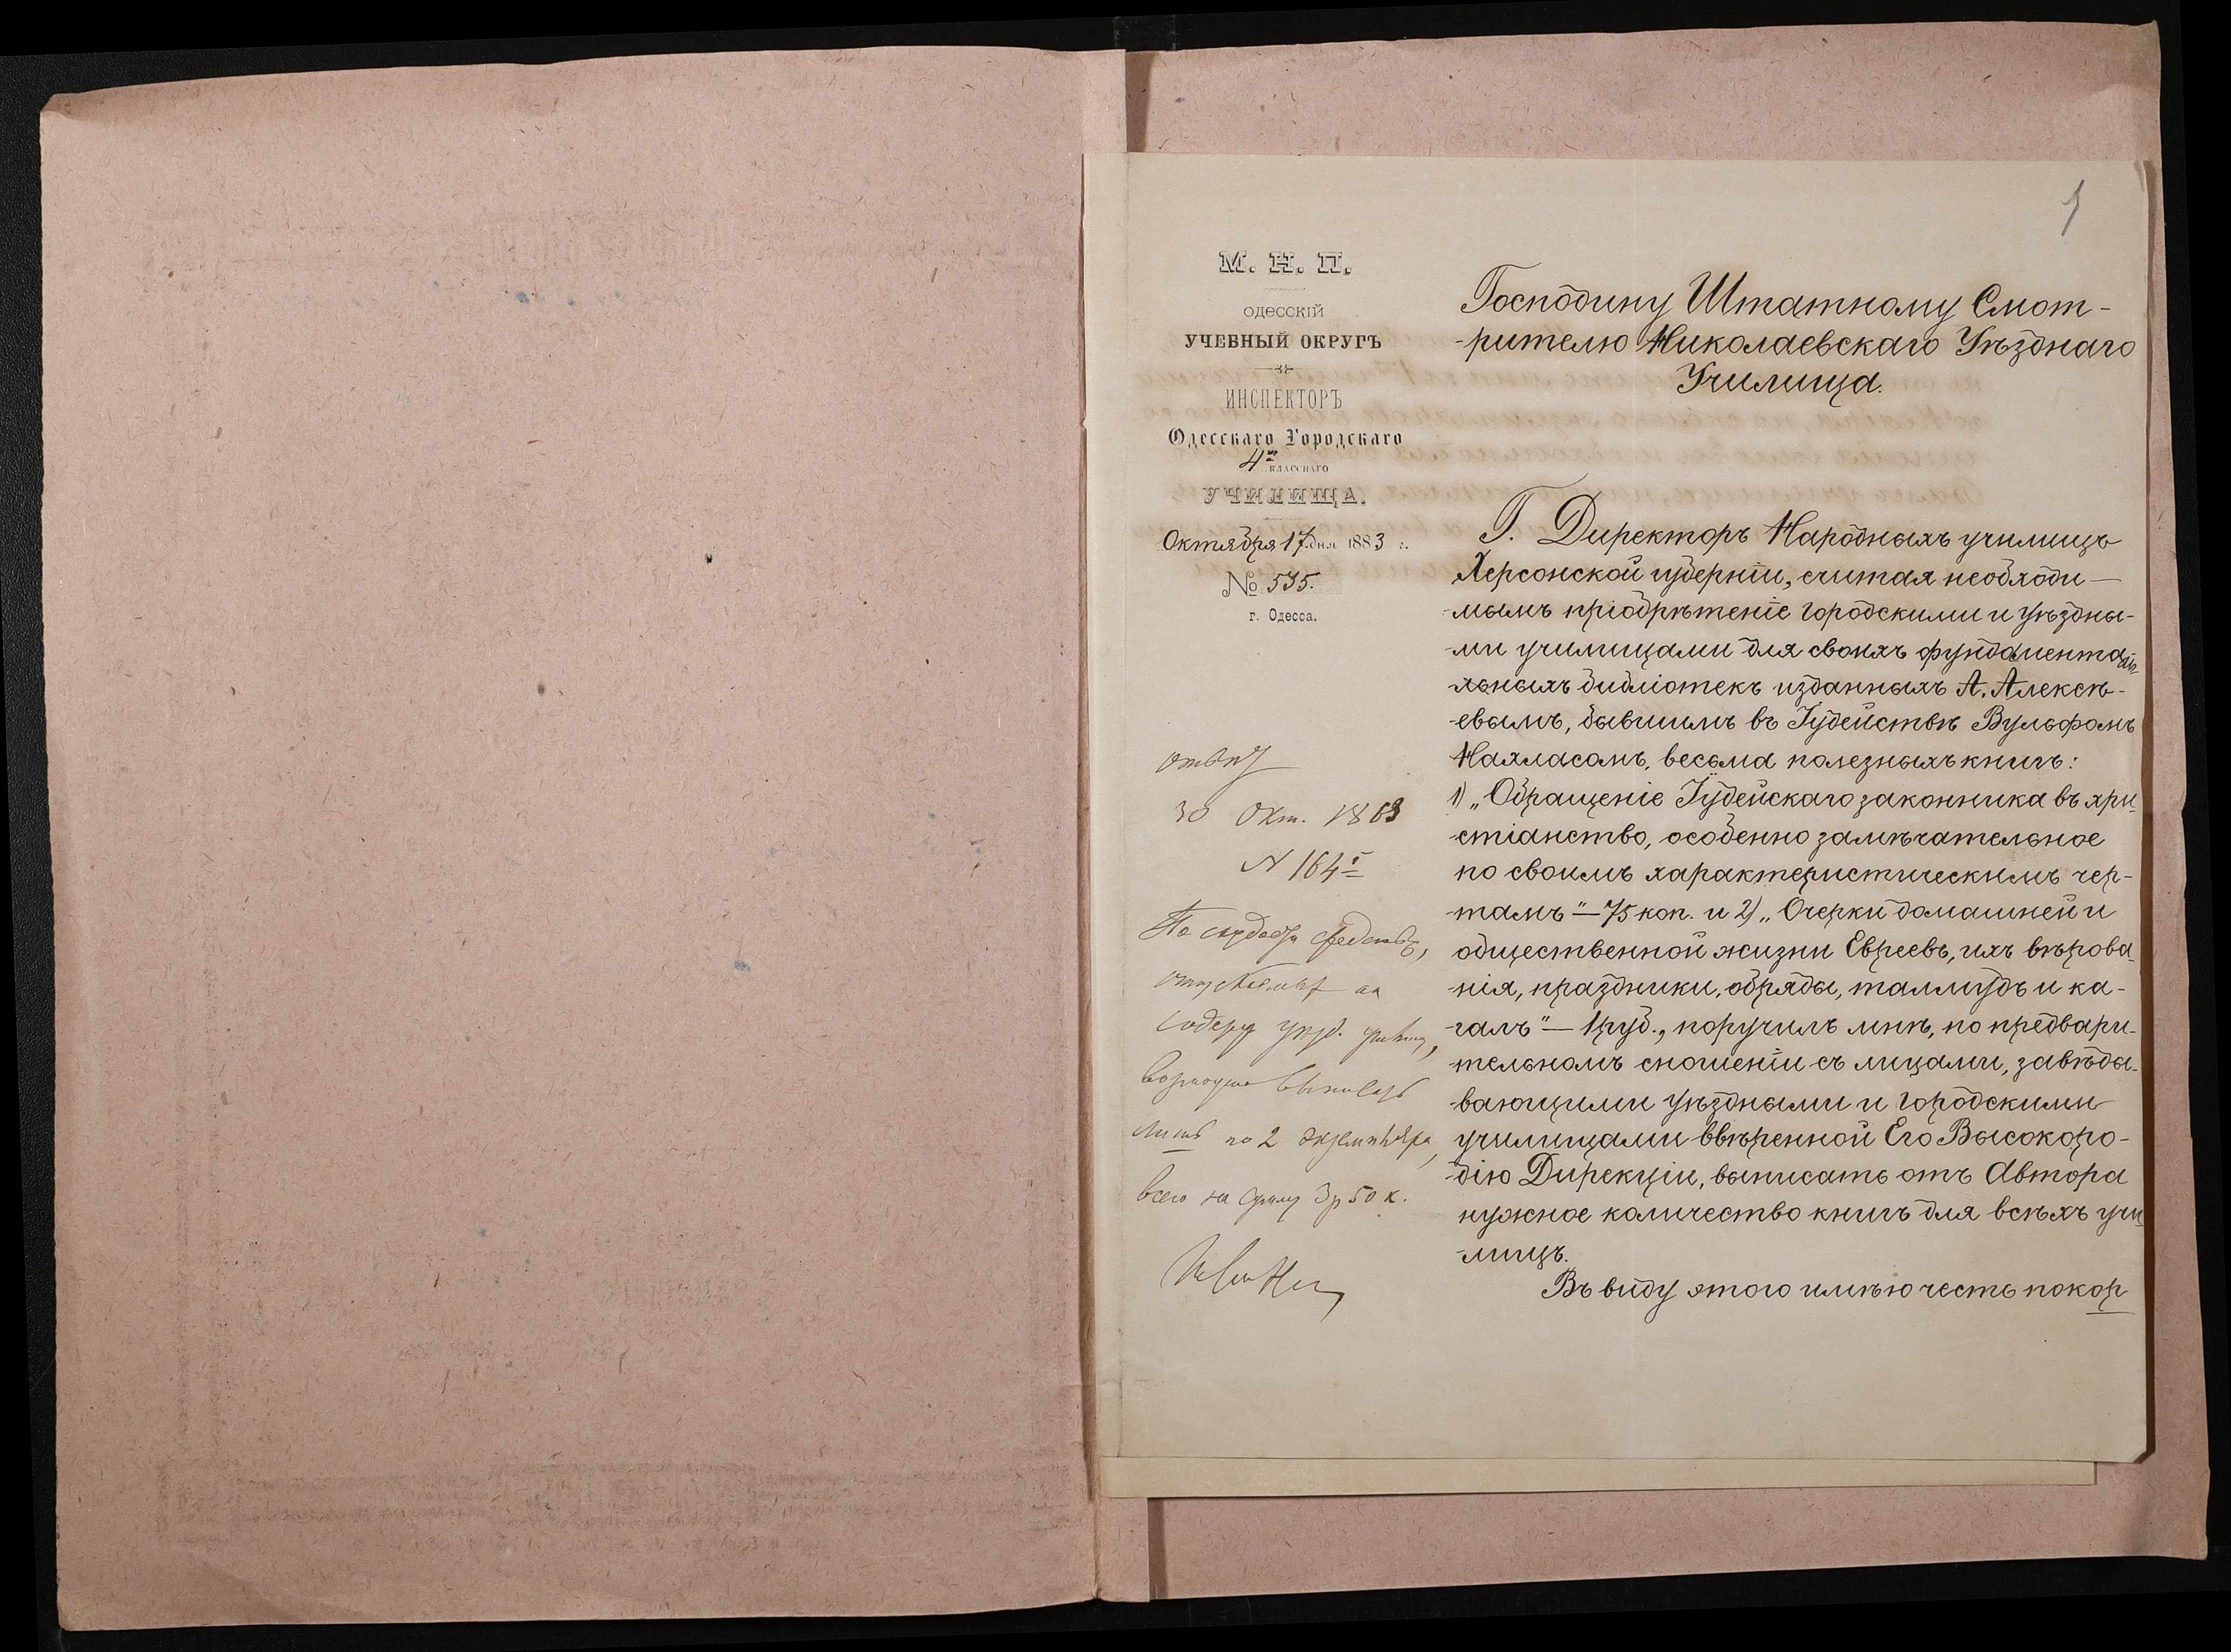 1
М. Н. П.
ОДЕССКІЙ
УЧЕБНЫЙ ОКРУГЪ
ИНСПЕКТОРЪ
Одесскаго Городскаго
4го классного
УЧИЛИЩА.
Октября 17 дня 1883 г.
№ 535.
г. Одесса.
Господину Штатному Смот-
-рителю Николаевскаго Уѣзднаго
Училища.
Г. Директоръ Народныхъ училищъ
Херсонской губерніи, считая необходи-
-мымъ пріобрѣтеніе городскими и уѣздны-
-ми училищами для своихъ фундамента
-льныхъ библіотекъ изданныхъ А. Алексѣ-
-евымъ, бывшимъ въ Іудействѣ Вульфомъ
Нахласомъ, весьма полезныхъ книгъ:
1) „Обращеніе Іудейскаго законника въ хри-
-стіанство, особенно замѣчательное
по своимъ характеристическимъ чер-
-тамъ" — 75 коп. и 2) „Очерки домашней и
общественной жизни Евреевъ, ихъ вѣрова-
-нія, праздники, обряды, таллмудъ и ка-
-галъ" — 1 руб., поручилъ мнѣ, по предвари-
-тельномъ сношеніи съ лицами, завѣды-
-вающими уѣздными и городскими
училищами ввѣренной Его Высокоро-
-дію Дирекціи, выписать отъ Автора
нужное количество книгъ для всѣхъ учи
-лищъ.
Въ виду этого имѣю честь покор
30 Окт. 1883
№ 164
средствъ,
на
возможно выписать
лишь по 2 экземпляра,
всего на сумму 3 р 50 к.